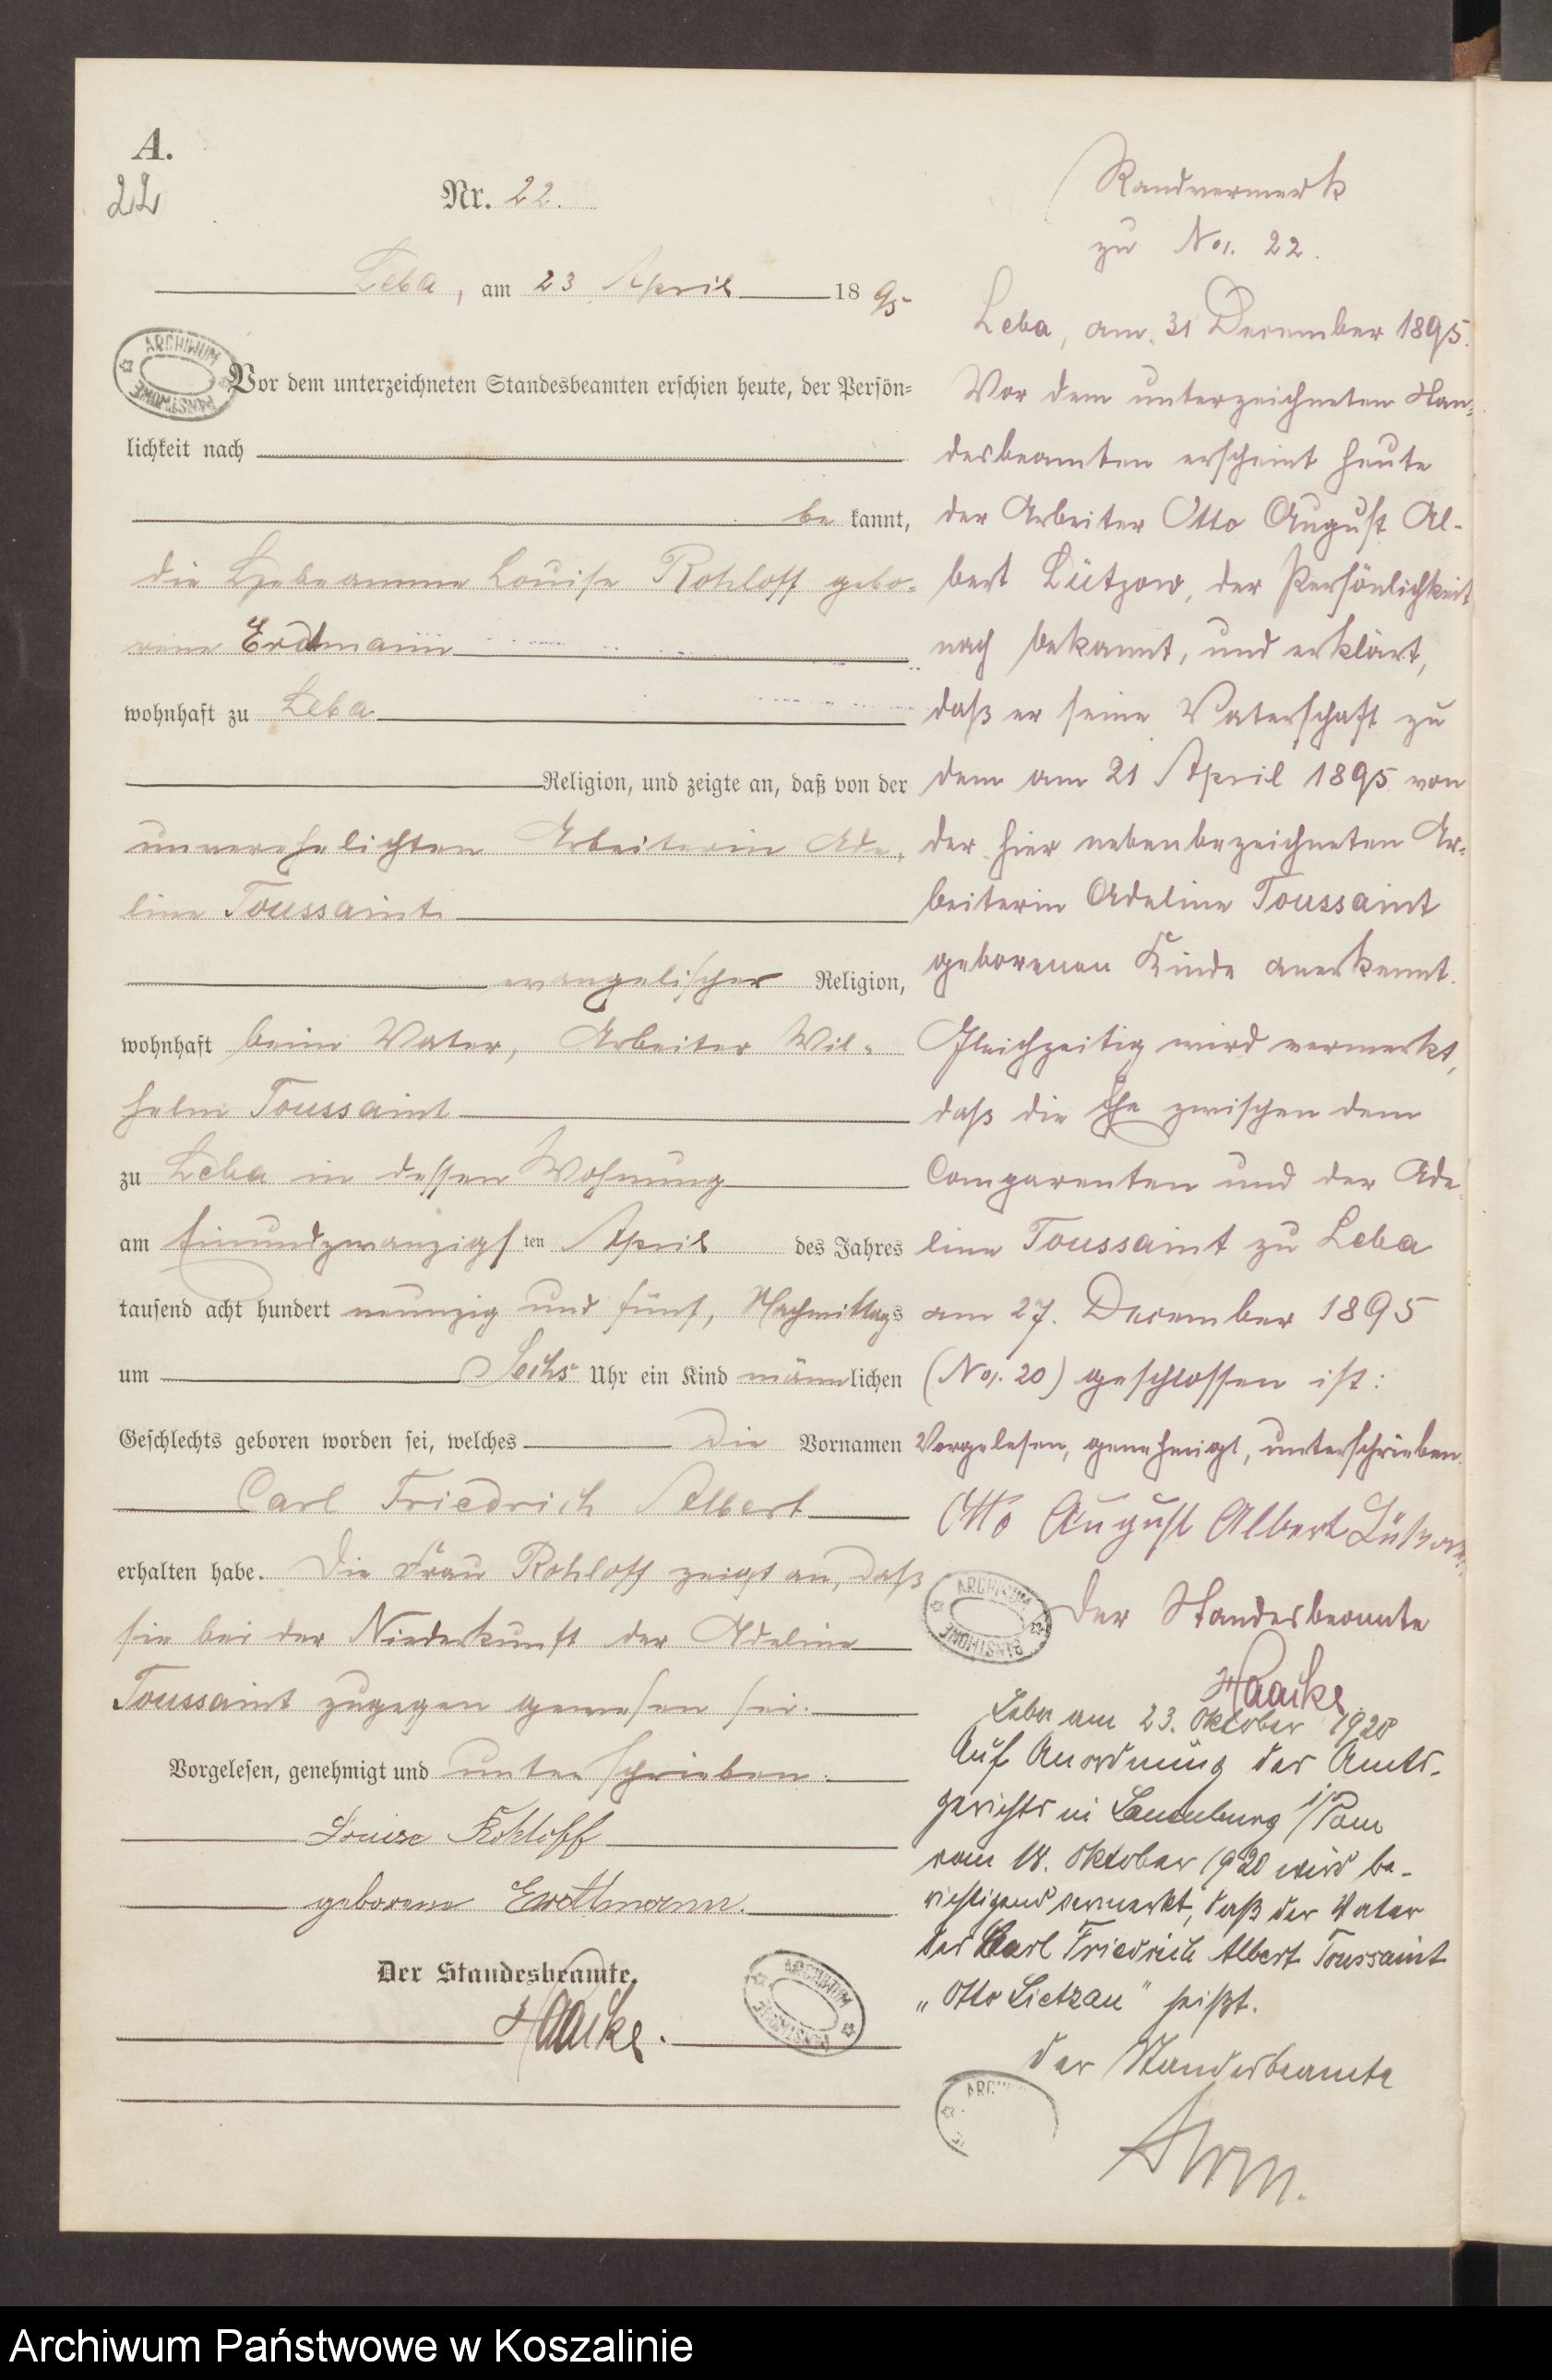 A.
22
Nr. 22.
Leba, am 23 April 1895
Vor dem unterzeichneten Standesbeamten erschien heute, der Persön=
lichkeit nach
be kannt,
die Hebeamme Louise Rohloff gebo-
rene Erdtmann
wohnhaft zu Leba
Religion, und zeigte an, daß von der
unverehelichten Arbeiterin Ade-
line Toussaint
evangelischer Religion,
wohnhaft beim Vater, Arbeiter Wil-
helm Toussaint
zu Leba in dessen Wohnung
am Einundzwanzigsten April des Jahres
tausend acht hundert neunzig und fünf, Nachmittags
um Sechs Uhr ein Kind männlichen
Geschlechts geboren worden sei, welches die Vornamen
Carl Friedrich Albert
erhalten habe. Die Frau Rohloff zeigt an, daß
sie bei der Niederkunft der Adeline
Toussaint zugegen gewesen sei.
Vorgelesen, genehmigt und unterschrieben.
Louise Rohloff
geborene Erdtmann.
Der Standesbeamte.
Haacke.
Randvermerk
zu No. 22.
Leba, am 31 December 1895.
Vor dem unterzeichneten Stan=
desbeamten erscheint heute
der Arbeiter Otto August Al-
bert Lützow, der Persönlichkeit
nach bekannt, und erklärt,
daß er seine Vaterschaft zu
dem am 21 April 1895 von
der hier nebenbezeichneten Ar-
beiterin Adeline Toussaint
geborenen Kinde anerkennt.
Gleichzeitig wird vermerkt,
daß die Ehe zwischen dem
Comparenten und der Ade-
line Toussaint zu Leba
am 27. December 1895
(No. 20) geschlossen ist:
Vorgelesen, genehmigt, unterschrieben.
Otto August Albert Lützow.
Der Standesbeamte
Haacke
Leba am 23. Oktober 1920
Auf Anordnung des Amts-
gerichts in Lauenburg i/Pom
vom 18. Oktober 1920 wird be-
richtigend vermerkt, daß der Vater
des Carl Friedrich Albert Toussaint
„Otto Lietzau" heißt.
Der Standesbeamte
ARCHIWUM PAŃSTWOWE
ARCHIWUM PAŃSTWOWE
ARCHIWUM PAŃSTWOWE
Archiwum Państwowe w Koszalinie